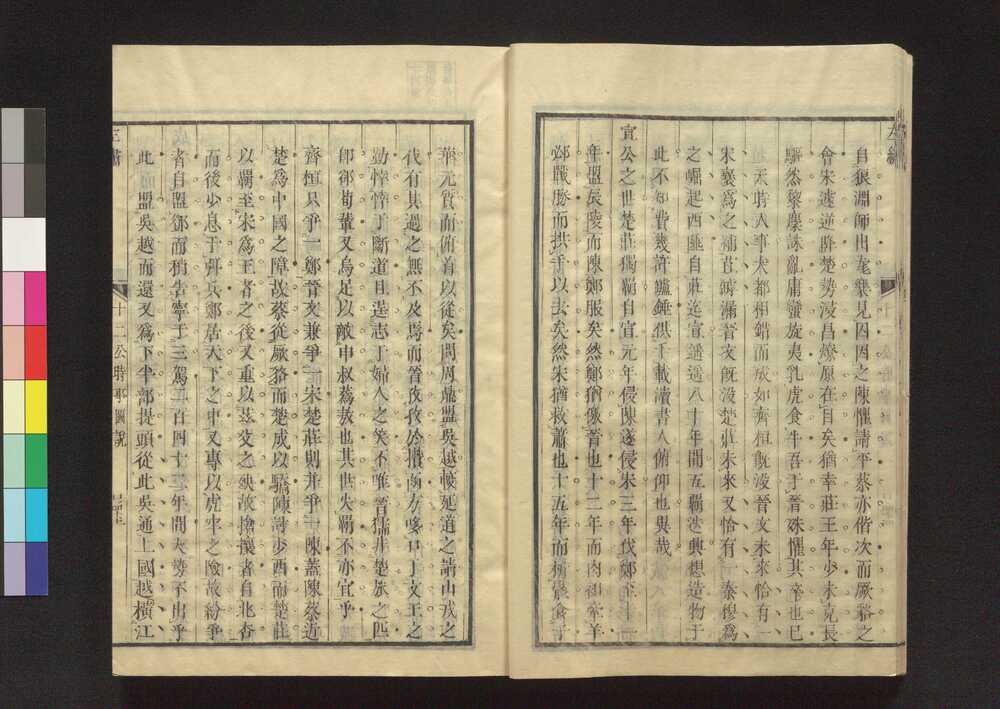 自狼淵師出尨㐮見囚因之陳懼請平蔡亦偕次而厥貉之
會宋遂逆降楚勢浸昌燎原在目矣猶幸莊王年少未克長
驅然黎麇誅亂庸蠻旋夷乳虎食牛吾于晉殊懼其卒也已
天時人事大都相錯而成如齊桓旣沒晉文未來恰有一
宋襄爲之補苴罅漏晉文旣没楚莊未來又恰有一秦穆爲
之崛起西陲自莊迄宣遥遥八十年間五覇迭興想造物于
此不知費幾許鑪錘供千載讀書人俯仰也異哉
宣公之世楚莊獨覇自宣元年侵陳遂侵宋三年伐鄭至十一
年盟辰陵而陳鄭服矣然鄭猶徼晉也十二年而肉袒牽羊
邲戰勝而拱手以去矣然宋猶救蕭也十五年而析骸食子
華元質而俯首以從矣問周鼎盟吳越悛延道之請山戎之
代有其過之無不及焉而晉孜孜於攢函方
勤悻悻于斷道且逞志于婦人之笑不唯晉獳非楚旅之匹
卽郤荀輩又烏足以敵申叔蒍敖也其世失覇不亦宜乎
齊恒只爭一鄭晉文兼爭一宋楚莊則并爭一陳蓋陳蔡近
楚爲中國之障故蔡從厥貉而楚成以驕陳討少西而楚莊
以覇至宋爲王者之後又重以茲父之殃故搶攘者自北杏
而後少息于弭兵鄭居天下之中又專以虎牢之險故紛爭
者自盟鄧而稍告寧于三駕二百四十二年間大勢不出乎
此盟吳越而還又爲下半部提頭從此吳通上國越橫江
十二公時事圖說